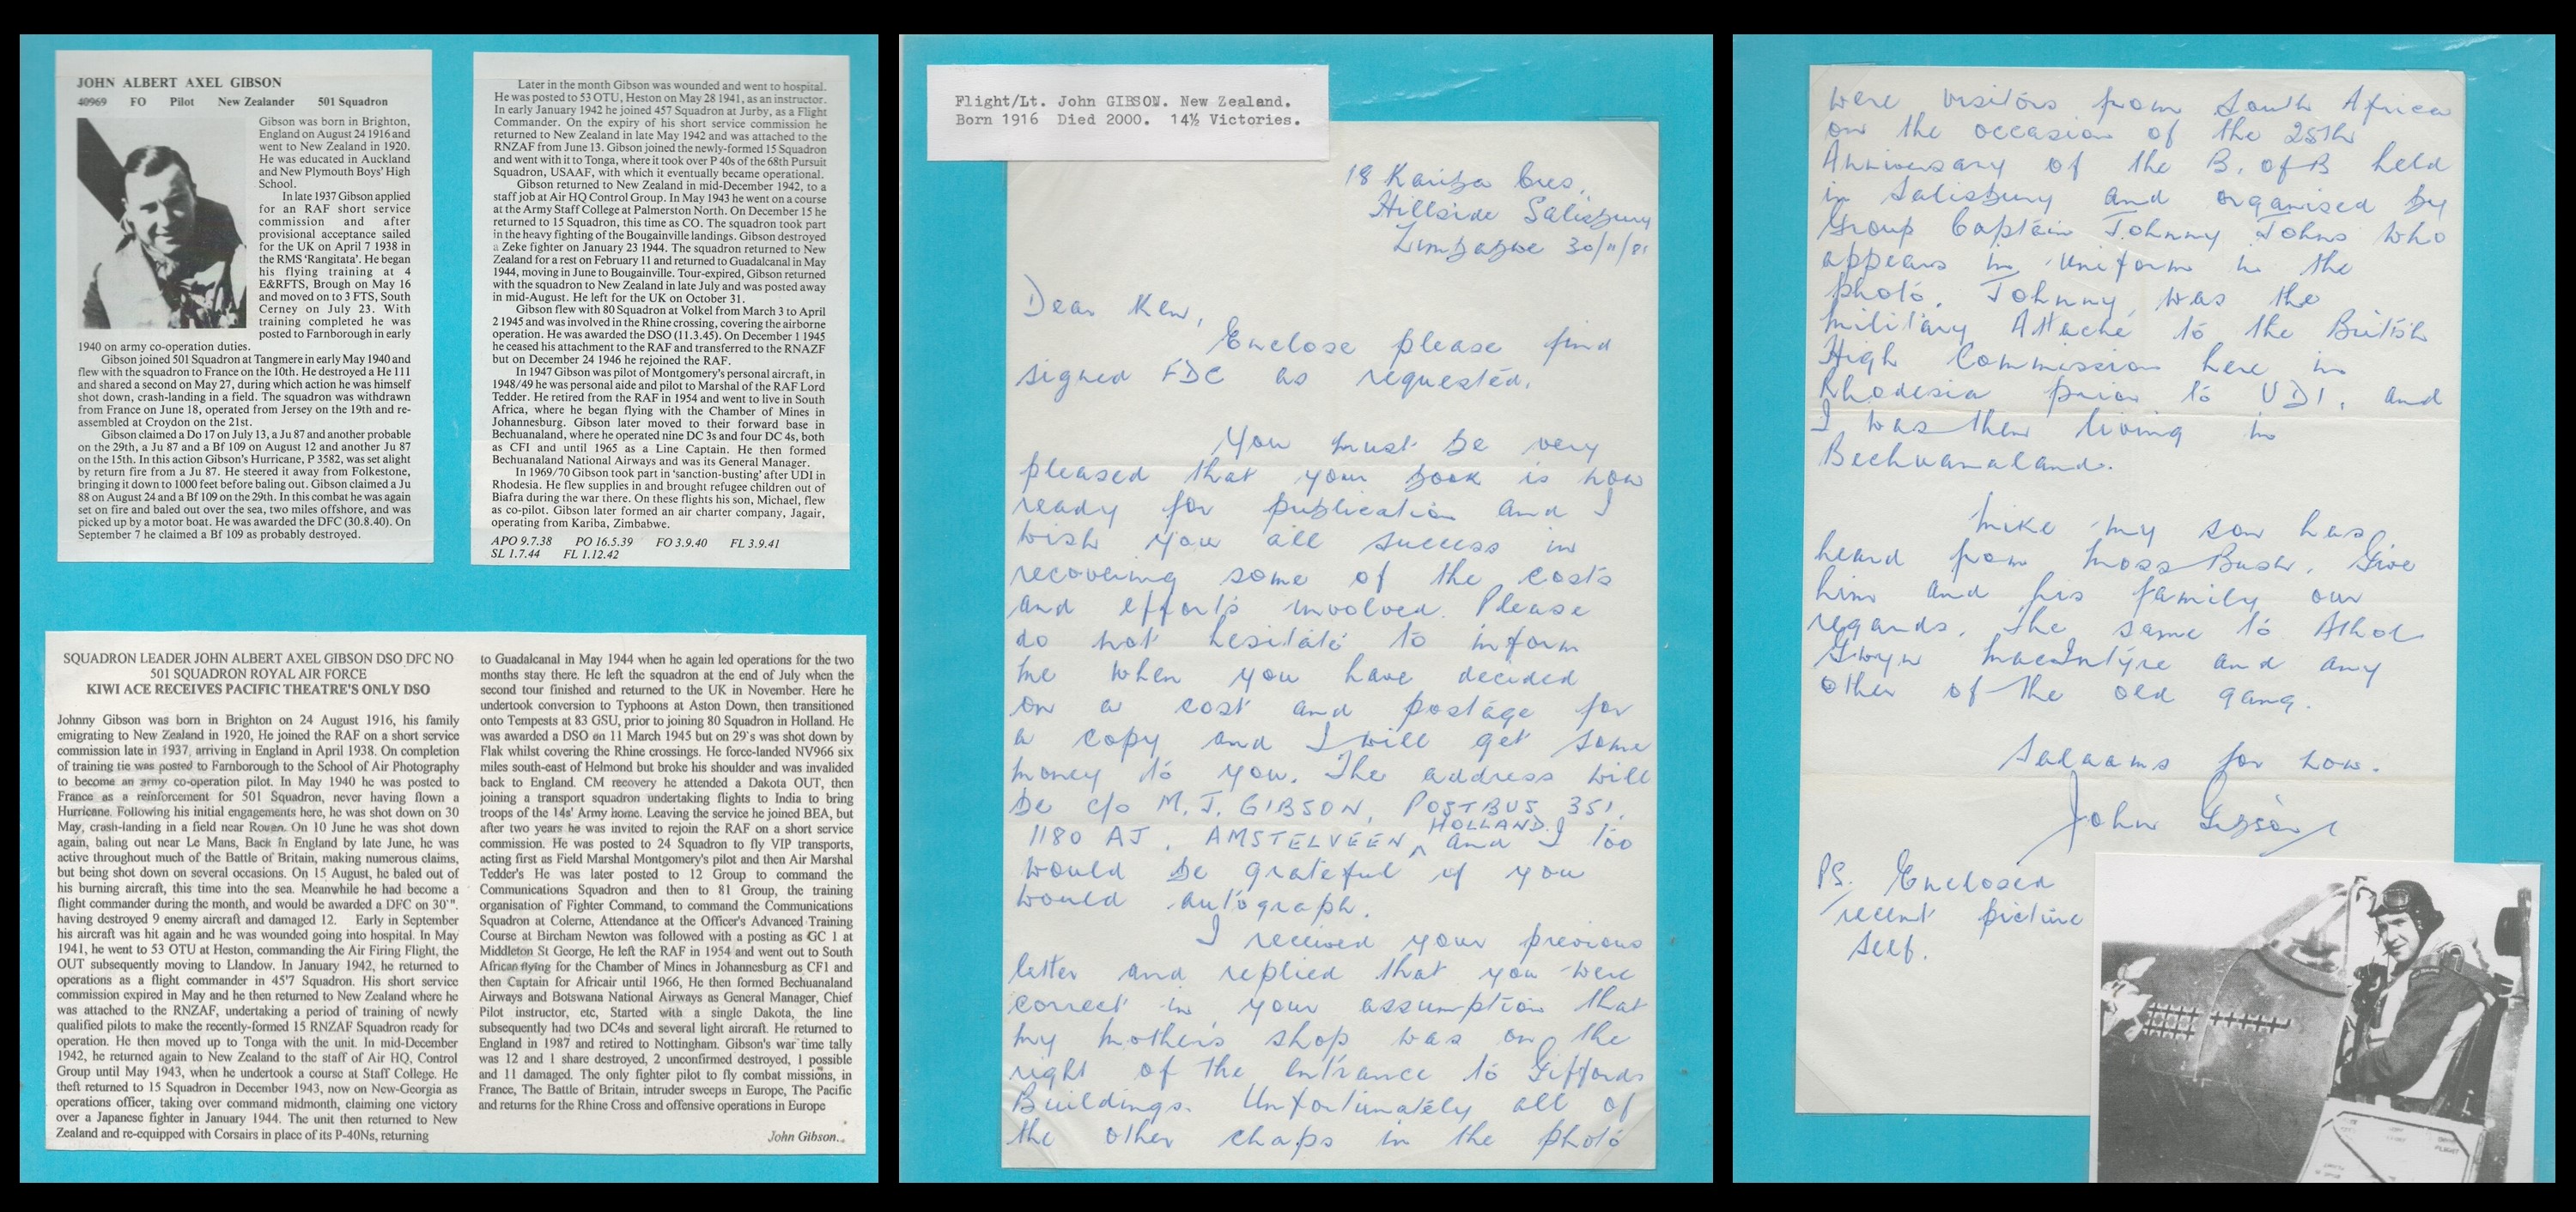 JOHN ALBERT AXEL GIBSON
40969 FO Pilot New Zealander 501 Squadron
Gibson was born in Brighton,
England on August 24 1916 and
went to New Zealand in 1920.
He was educated in Auckland
and New Plymouth Boys' High
School.
In late 1937 Gibson applied
for an RAF short service
commission and after
provisional acceptance sailed
for the UK on April 7 1938 in
the RMS 'Rangitata'. He began
his flying training at 4
E&RFTS, Brough on May 16
and moved on to 3 FTS, South
Cerney on July 23. With
training completed he was
posted to Farnborough in early
1940 on army co-operation duties.
Gibson joined 501 Squadron at Tangmere in early May 1940 and
flew with the squadron to France on the 10th. He destroyed a He 111
and shared a second on May 27, during which action he was himself
shot down, crash-landing in a field. The squadron was withdrawn
from France on June 18, operated from Jersey on the 19th and re-
assembled at Croydon on the 21st.
Gibson claimed a Do 17 on July 13, a Ju 87 and another probable
on the 29th, a Ju 87 and a Bf 109 on August 12 and another Ju 87
on the 15th. In this action Gibson's Hurricane, P 3582, was set alight
by return fire from a Ju 87. He steered it away from Folkestone,
bringing it down to 1000 feet before baling out. Gibson claimed a Ju
88 on August 24 and a Bf 109 on the 29th. In this combat he was again
set on fire and baled out over the sea, two miles offshore, and was
picked up by a motor boat. He was awarded the DFC (30.8.40). On
September 7 he claimed a Bf 109 as probably destroyed.
Later in the month Gibson was wounded and went to hospital.
He was posted to 53 OTU, Heston on May 28 1941, as an instructor.
In early January 1942 he joined 457 Squadron at Jurby, as a Flight
Commander. On the expiry of his short service commission he
returned to New Zealand in late May 1942 and was attached to the
RNZAF from June 13. Gibson joined the newly-formed 15 Squadron
and went with it to Tonga, where it took over P 40s of the 68th Pursuit
Squadron, USAAF, with which it eventually became operational.
Gibson returned to New Zealand in mid-December 1942, to a
staff job at Air HQ Control Group. In May 1943 he went on a course
at the Army Staff College at Palmerston North. On December 15 he
returned to 15 Squadron, this time as CO. The squadron took part
in the heavy fighting of the Bougainville landings. Gibson destroyed
a Zeke fighter on January 23 1944. The squadron returned to New
Zealand for a rest on February 11 and returned to Guadalcanal in May
1944, moving in June to Bougainville. Tour-expired, Gibson returned
with the squadron to New Zealand in late July and was posted away
in mid-August. He left for the UK on October 31.
Gibson flew with 80 Squadron at Volkel from March 3 to April
2 1945 and was involved in the Rhine crossing, covering the airborne
operation. He was awarded the DSO (11.3.45). On December 1 1945
he ceased his attachment to the RAF and transferred to the RNAZF
but on December 24 1946 he rejoined the RAF.
In 1947 Gibson was pilot of Montgomery's personal aircraft, in
1948/49 he was personal aide and pilot to Marshal of the RAF Lord
Tedder. He retired from the RAF in 1954 and went to live in South
Africa, where he began flying with the Chamber of Mines in
Johannesburg. Gibson later moved to their forward base in
Bechuanaland, where he operated nine DC 3s and four DC 4s, both
as CFI and until 1965 as a Line Captain. He then formed
Bechuanaland National Airways and was its General Manager.
In 1969/70 Gibson took part in 'sanction-busting' after UDI in
Rhodesia. He flew supplies in and brought refugee children out of
Biafra during the war there. On these flights his son, Michael, flew
as co-pilot. Gibson later formed an air charter company, Jagair,
operating from Kariba, Zimbabwe.
APO 9.7.38 PO 16.5.39 FO 3.9.40 FL 3.9.41
SL 1.7.44 FL 1.12.42
SQUADRON LEADER JOHN ALBERT AXEL GIBSON DSO DFC NO
501 SQUADRON ROYAL AIR FORCE
KIWI ACE RECEIVES PACIFIC THEATRE'S ONLY DSO
Johnny Gibson was born in Brighton on 24 August 1916, his family
emigrating to New Zealand in 1920, He joined the RAF on a short service
commission late in 1937, arriving in England in April 1938. On completion
of training tie was posted to Farnborough to the School of Air Photography
to become an army co-operation pilot. In May 1940 he was posted to
France as a reinforcement for 501 Squadron, never having flown a
Hurricane. Following his initial engagements here, he was shot down on 30
May, crash-landing in a field near Rouen. On 10 June he was shot down
again, baling out near Le Mans, Back In England by late June, he was
active throughout much of the Battle of Britain, making numerous claims,
but being shot down on several occasions. On 15 August, he baled out of
his burning aircraft, this time into the sea. Meanwhile he had become a
flight commander during the month, and would be awarded a DFC on 30'".
having destroyed 9 enemy aircraft and damaged 12. Early in September
his aircraft was hit again and he was wounded going into hospital. In May
1941, he went to 53 OTU at Heston, commanding the Air Firing Flight, the
OUT subsequently moving to Llandow. In January 1942, he returned to
operations as a flight commander in 45'7 Squadron. His short service
commission expired in May and he then returned to New Zealand where he
was attached to the RNZAF, undertaking a period of training of newly
qualified pilots to make the recently-formed 15 RNZAF Squadron ready for
operation. He then moved up to Tonga with the unit. In mid-December
1942, he returned again to New Zealand to the staff of Air HQ, Control
Group until May 1943, when he undertook a course at Staff College. He
theft returned to 15 Squadron in December 1943, now on New-Georgia as
operations officer, taking over command midmonth, claiming one victory
over a Japanese fighter in January 1944. The unit then returned to New
Zealand and re-equipped with Corsairs in place of its P-40Ns, returning
to Guadalcanal in May 1944 when he again led operations for the two
months stay there. He left the squadron at the end of July when the
second tour finished and returned to the UK in November. Here he
undertook conversion to Typhoons at Aston Down, then transitioned
onto Tempests at 83 GSU, prior to joining 80 Squadron in Holland. He
was awarded a DSO on 11 March 1945 but on 29's was shot down by
Flak whilst covering the Rhine crossings. He force-landed NV966 six
miles south-east of Helmond but broke his shoulder and was invalided
back to England. CM recovery he attended a Dakota OUT, then
joining a transport squadron undertaking flights to India to bring
troops of the 14s' Army home. Leaving the service he joined BEA, but
after two years he was invited to rejoin the RAF on a short service
commission. He was posted to 24 Squadron to fly VIP transports,
acting first as Field Marshal Montgomery's pilot and then Air Marshal
Tedder's He was later posted to 12 Group to command the
Communications Squadron and then to 81 Group, the training
organisation of Fighter Command, to command the Communications
Squadron at Colerne, Attendance at the Officer's Advanced Training
Course at Bircham Newton was followed with a posting as GC 1 at
Middleton St George, He left the RAF in 1954 and went out to South
African flying for the Chamber of Mines in Johannesburg as CF1 and
then Captain for Africair until 1966, He then formed Bechuanaland
Airways and Botswana National Airways as General Manager, Chief
Pilot instructor, etc, Started with a single Dakota, the line
subsequently had two DC4s and several light aircraft. He returned to
England in 1987 and retired to Nottingham. Gibson's war time tally
was 12 and 1 share destroyed, 2 unconfirmed destroyed, 1 possible
and 11 damaged. The only fighter pilot to fly combat missions, in
France, The Battle of Britain, intruder sweeps in Europe, The Pacific
and returns for the Rhine Cross and offensive operations in Europe
John Gibson..
Flight/Lt. John GIBSON. New Zealand.
Born 1916 Died 2000. 14½ Victories.
18 Kariba Cres,
Hillside Salisbury
Zimbabwe 30/11/81
Dear Ken,
Enclose please find
signed FDC as requested.
You must be very
pleased that your book is now
ready for publication and I
wish you all success in
recovering some of the costs
and efforts involved. Please
do not hesitate to inform
me when you have decided
on a cost and postage for
a copy and I will get some
money to you. The address will
be c/o M.J. GIBSON, POSTBUS 351,
1180 AJ, AMSTELVEEN, HOLLAND. and I too
would be grateful if you
would autograph.
I received your previous
letter and replied that you were
correct in your assumption that
my mother's shop was on the
right of the entrance to Giffords
Buildings. Unfortunately all of
the other chaps in the photo
were visitors from South Africa
on the occasion of the 25th
Anniversary of the B. of B held
in Salisbury and organised by
Group Captain Johnny Johns who
appears in uniform in the
photo. Johnny, was the
military Attaché to the British
High Commission here in
Rhodesia prior to UDI, and
I was then living in
Bechuanaland.
Mike my son has
heard from Moss Bush. Give
him and his family our
regards. The same to Athol
Gwyn MacIntyre and any
other of the old gang.
Salaams for now.
John Gibson
PS. Enclosed
recent picture
self.